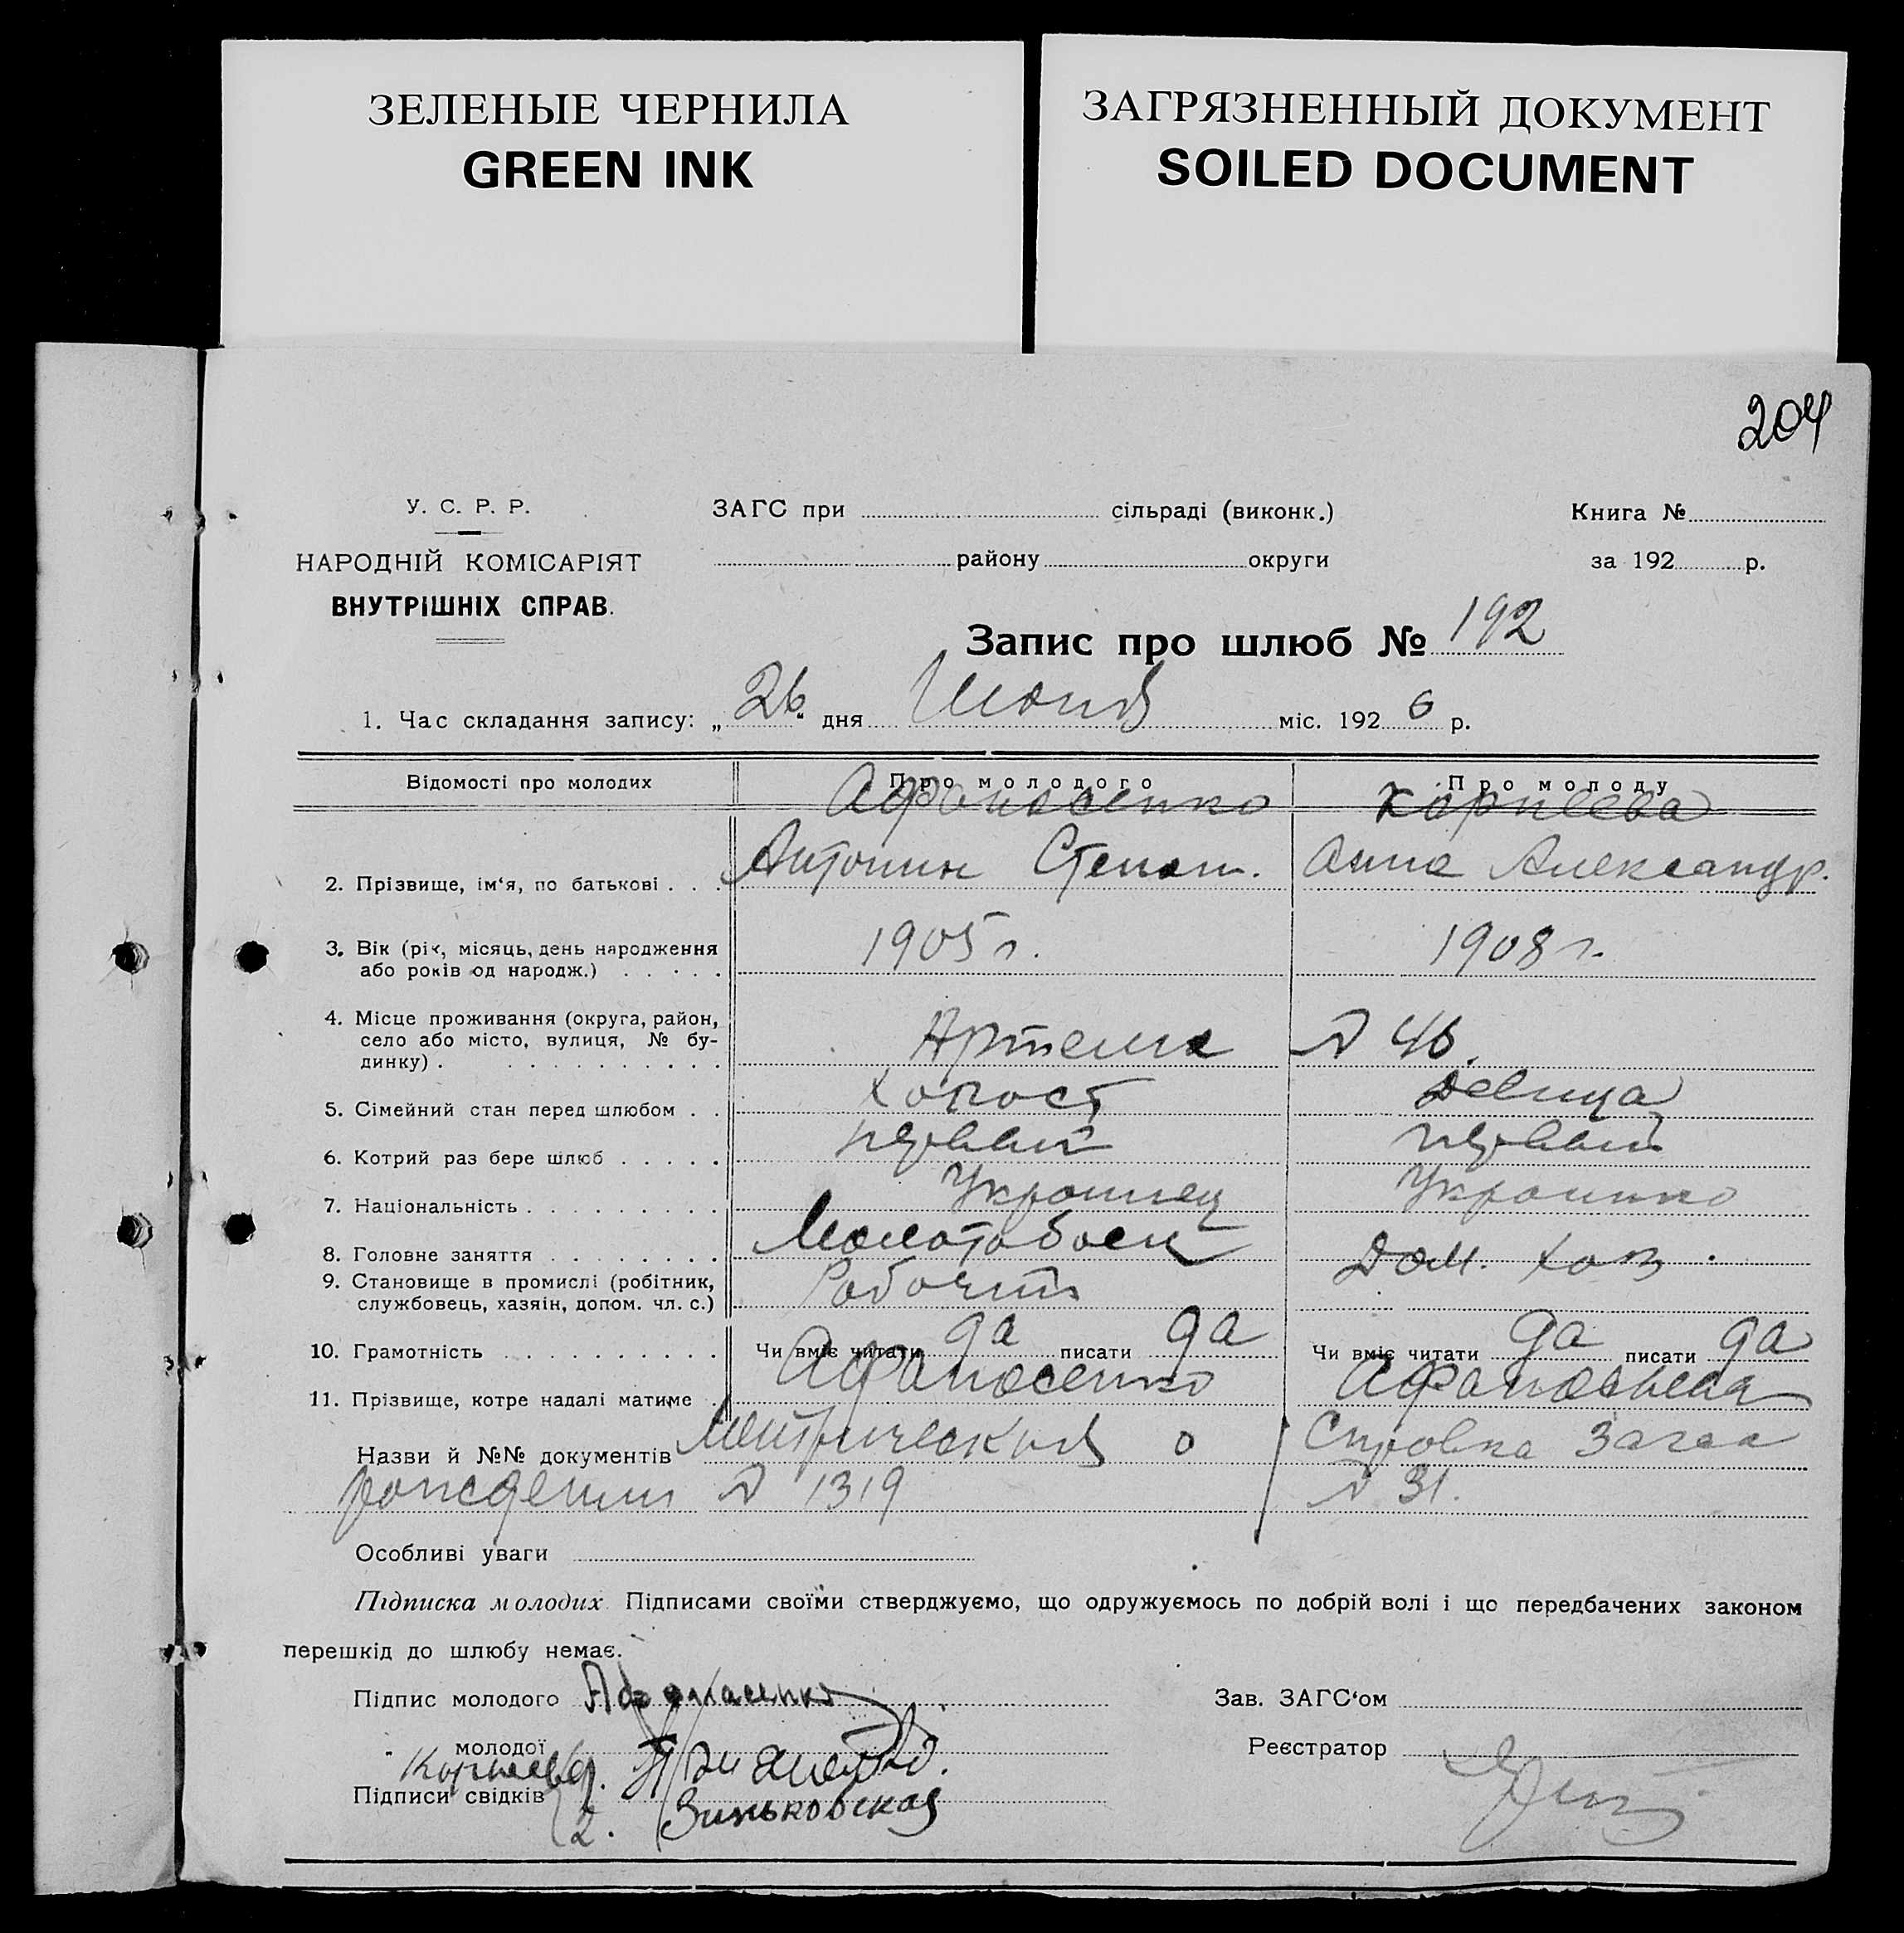 ЗЕЛЕНЫЕ ЧЕРНИЛА
GREEN INK
ЗАГРЯЗНЕННЫЙ ДОКУМЕНТ
SOILED DOCUMENT
204
У. С. Р. Р.
НАРОДНІЙ КОМІСАРІЯТ
ВНУТРІШНІХ СПРАВ.
ЗАГС при сільраді (виконк.)
району округи
Книга №
за 192 р.
Запис про шлюб № 192
1. Час складання запису: „26" дня Июня міс. 1926 р.
Відомості про молодих Про молодого Про молоду
Афанасенко Корнеева
2. Прізвище, ім'я, по батькові . . . Антонин Степан. Анна Александр.
3. Вік (рік, місяць, день народження 1905 г. 1908 г.
або років од народж.) . . . . .
4. Місце проживання (округа, район,
село або місто, вулиця, № бу- Артема № 46.
динку) . . . . . . . . . . .
5. Сімейний стан перед шлюбом . . Холост Девица
6. Котрий раз бере шлюб . . . . . первый первый
7. Національність . . . . . . . . . Украинец Украинка
8. Головне заняття . . . . . . . . Молотобоец Дом. хоз.
9. Становище в промислі (робітник, Рабочий
службовець, хазяін, допом. чл. с.)
10. Грамотність . . . . . . . . . . Чи вміє читати да писати да Чи вміє читати да писати да
11. Прізвище, котре надалі матиме . Афанасенко
Назви й №№ документів Метрическая о Справка Загса
рождении № 1319 № 31.
Особливі уваги
Підписка молодих. Підписами своїми стверджуємо, що одружуємось по добрій волі і що передбачених законом
перешкід до шлюбу немає.
Підпис молодого Афонасенко Зав. ЗАГС'ом
„ молодої Реєстратор
Корнеева
Підписи свідків
2. Зиньковская